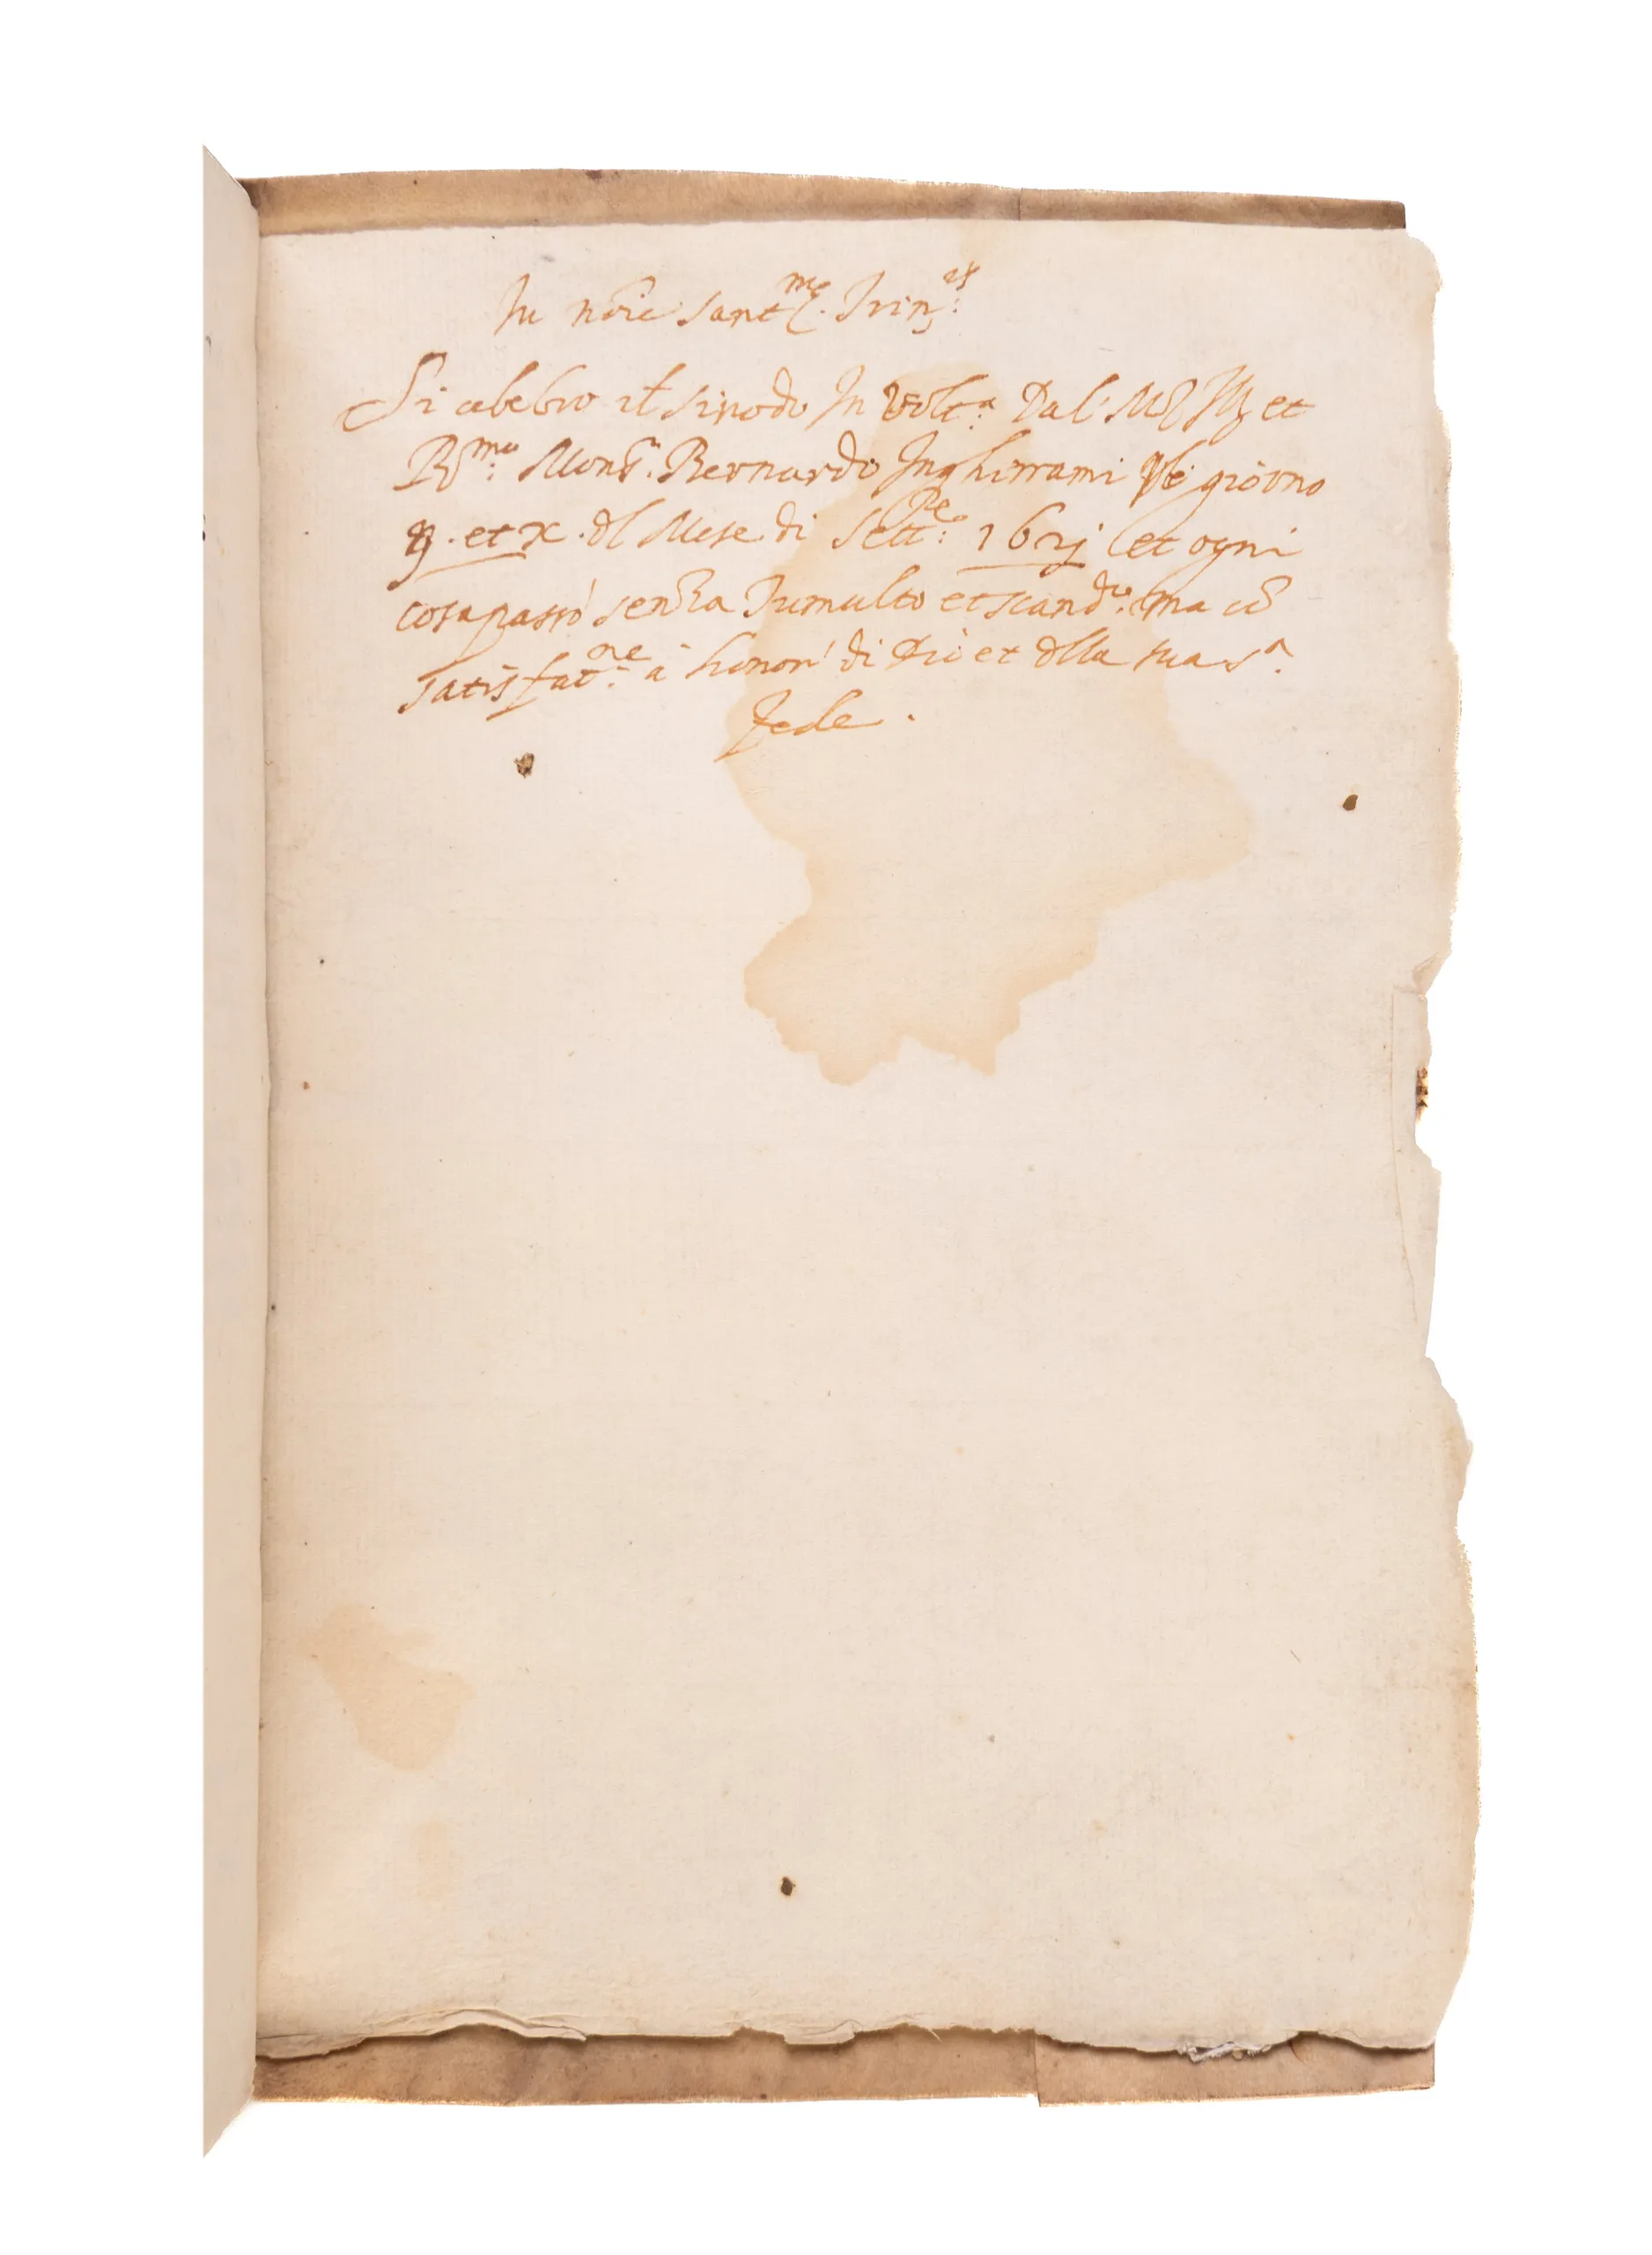 In no͞ie Sant.me Trin.tis
Si celebrò il sinodo In Volt.a Dal Mol Ill et
R.mo Mons.r Bernardo Inghirrami giorno
9. et x. dl Mese di Sett.re 1621 et ogni
cosa passò senza Tumulto et scand.lo ma cõ
satisfat.ne à honor' di Dio et dlla sua S.a
fede.